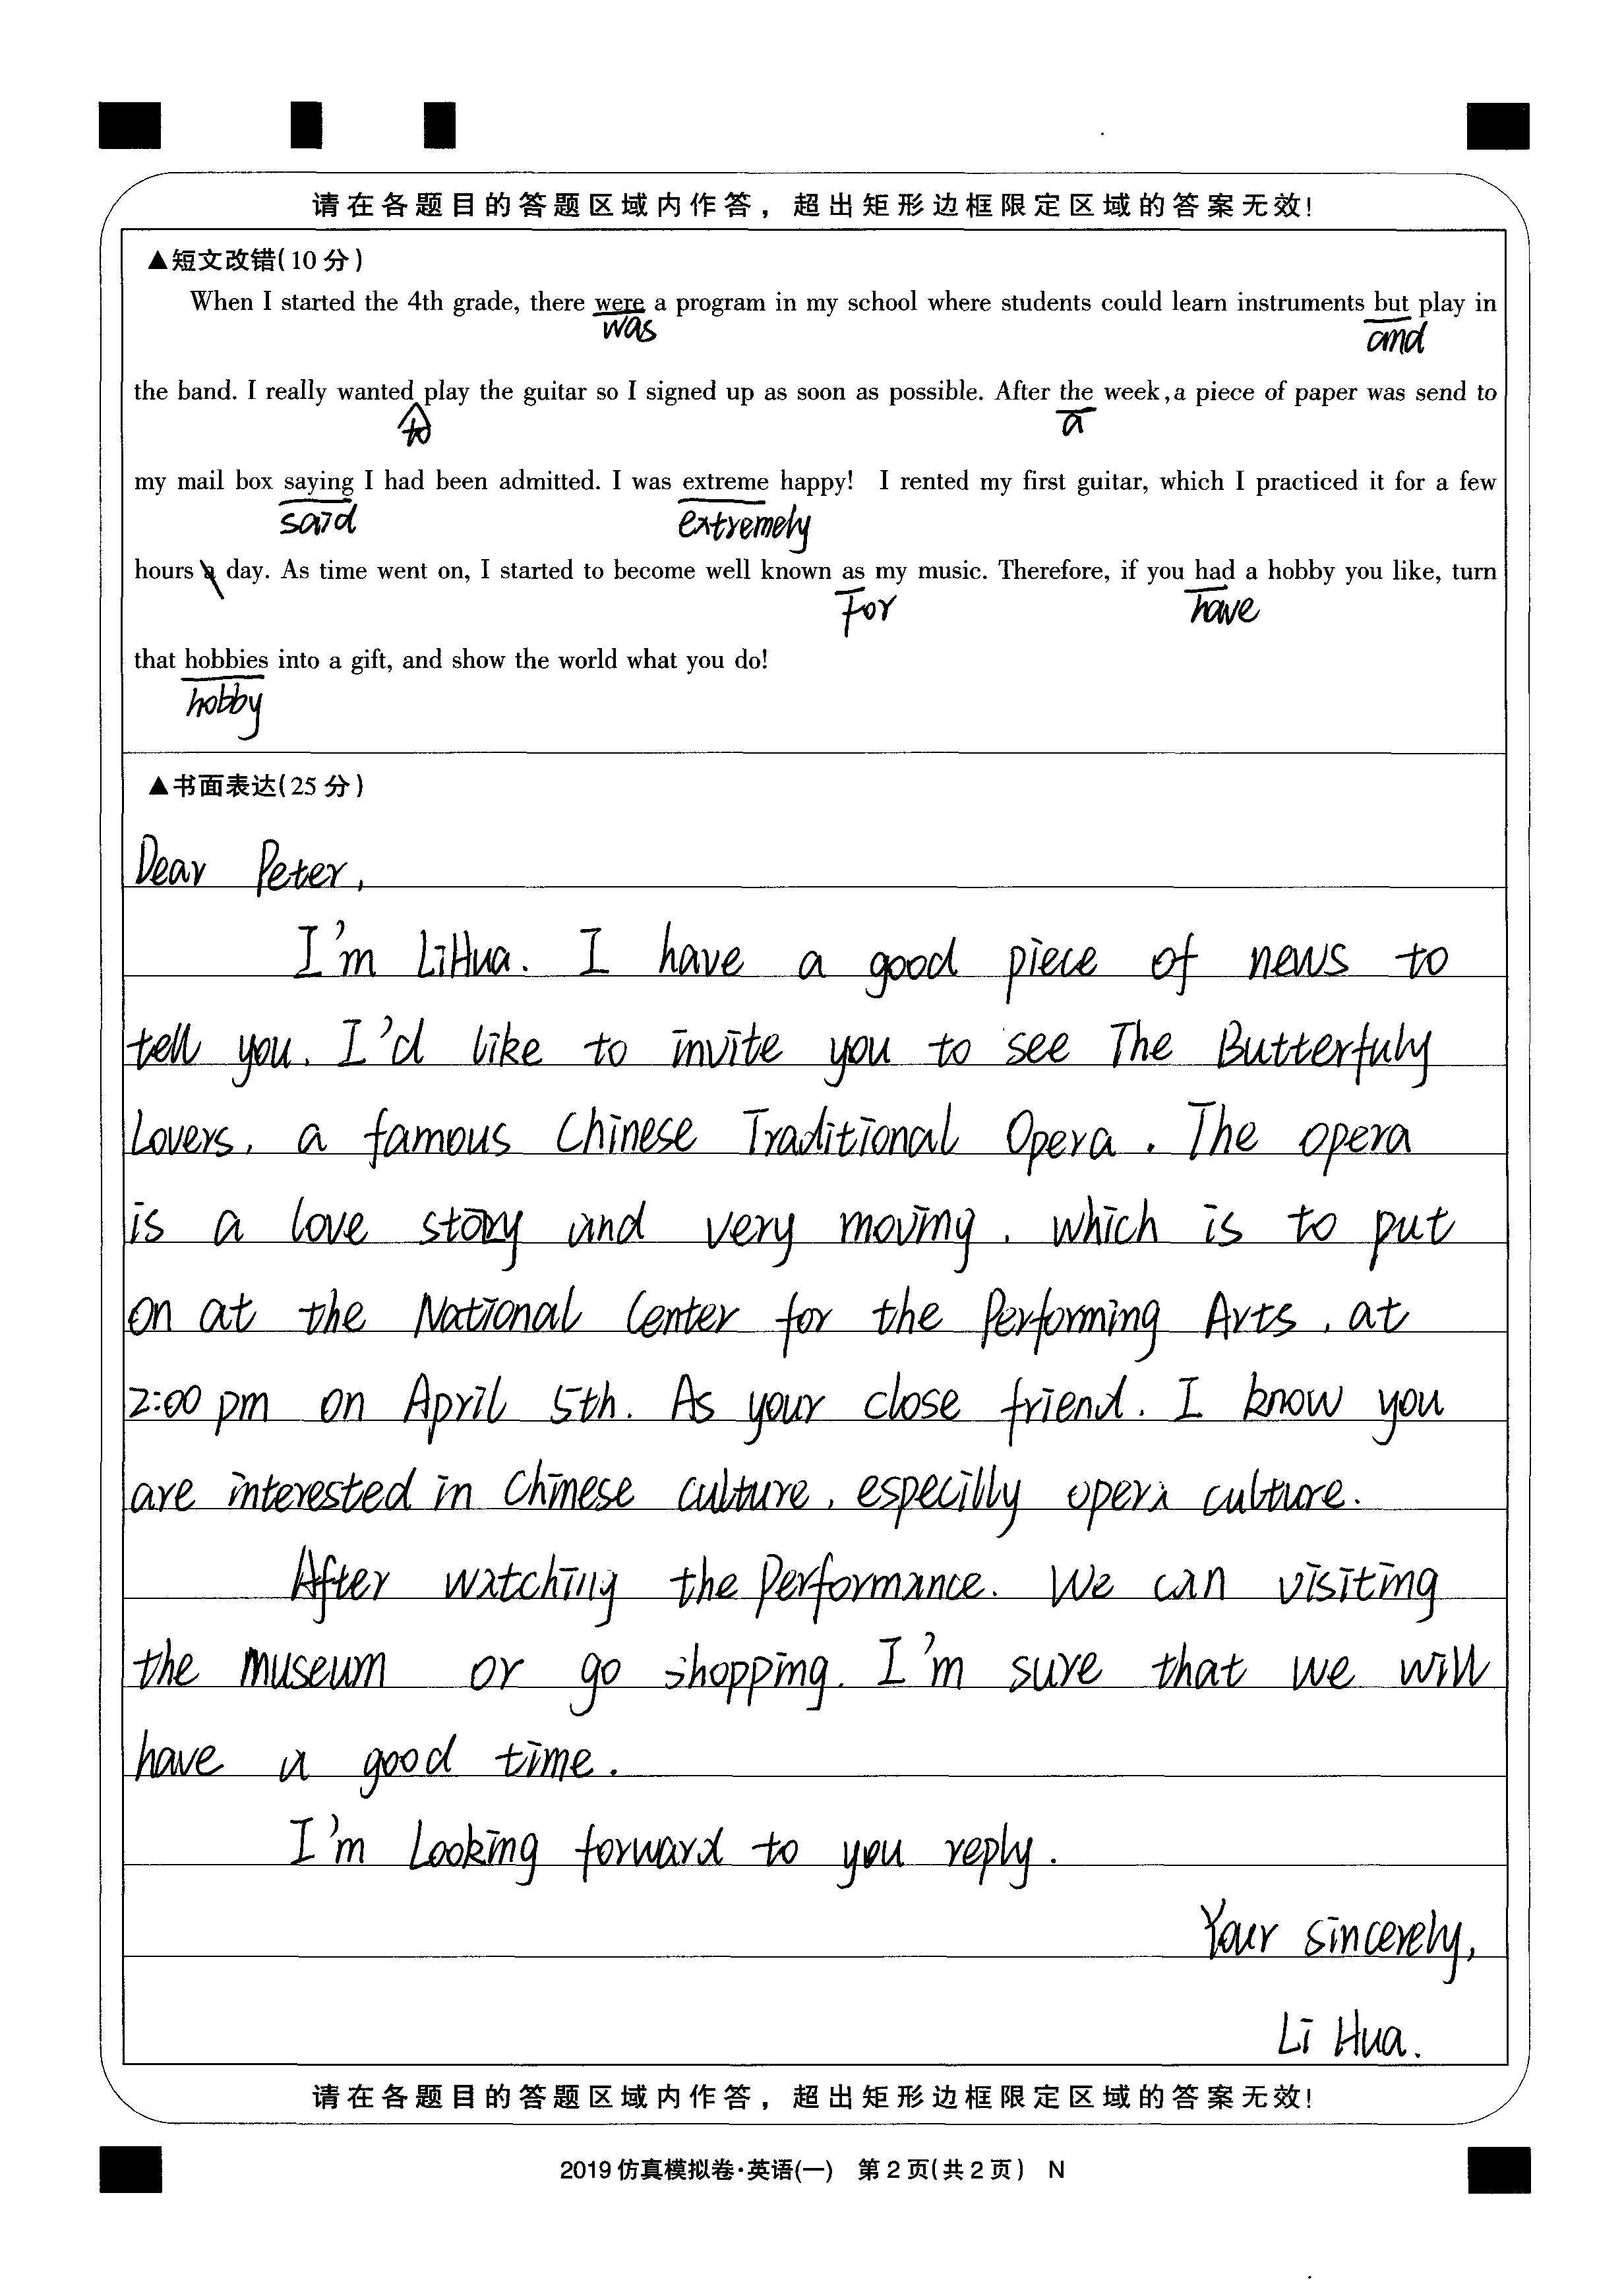 请在各题目的答题区域内作答，超出矩形边框限定区域的答案无效!
▲短文改错(10分)
When I started the 4th grade, there were a program in my school where students could learn instruments but play in
was and
the band. I really wanted play the guitar so I signed up as soon as possible. After the week,a piece of paper was send to
to a
my mail box saying I had been admitted. I was extreme happy! I rented my first guitar, which I practiced it for a few
said extremely
hours a day. As time went on, I started to become well known as my music. Therefore, if you had a hobby you like, turn
For have
that hobbies into a gift, and show the world what you do!
hobby
▲书面表达(25分)
Dear Peter,
I'm LiHua. I have a good piece of news to
tell you. I'd like to invite you to see The Butterfuly
Lovers, a famous Chinese Traditional Opera. The opera
is a love story and very moving, which is to put
on at the National Center for the Performing Arts, at
2:00 pm on April 5th. As your close friend. I know you
are interested in Chinese culture, especilly opera culture.
After watching the Performance. We can visiting
the museum or go shopping. I'm sure that we will
have a good time.
I'm Looking forward to you reply.
Your sincerely,
Li Hua.
请在各题目的答题区域内作答，超出矩形边框限定区域的答案无效!
2019仿真模拟卷·英语(一) 第2页(共2页) N